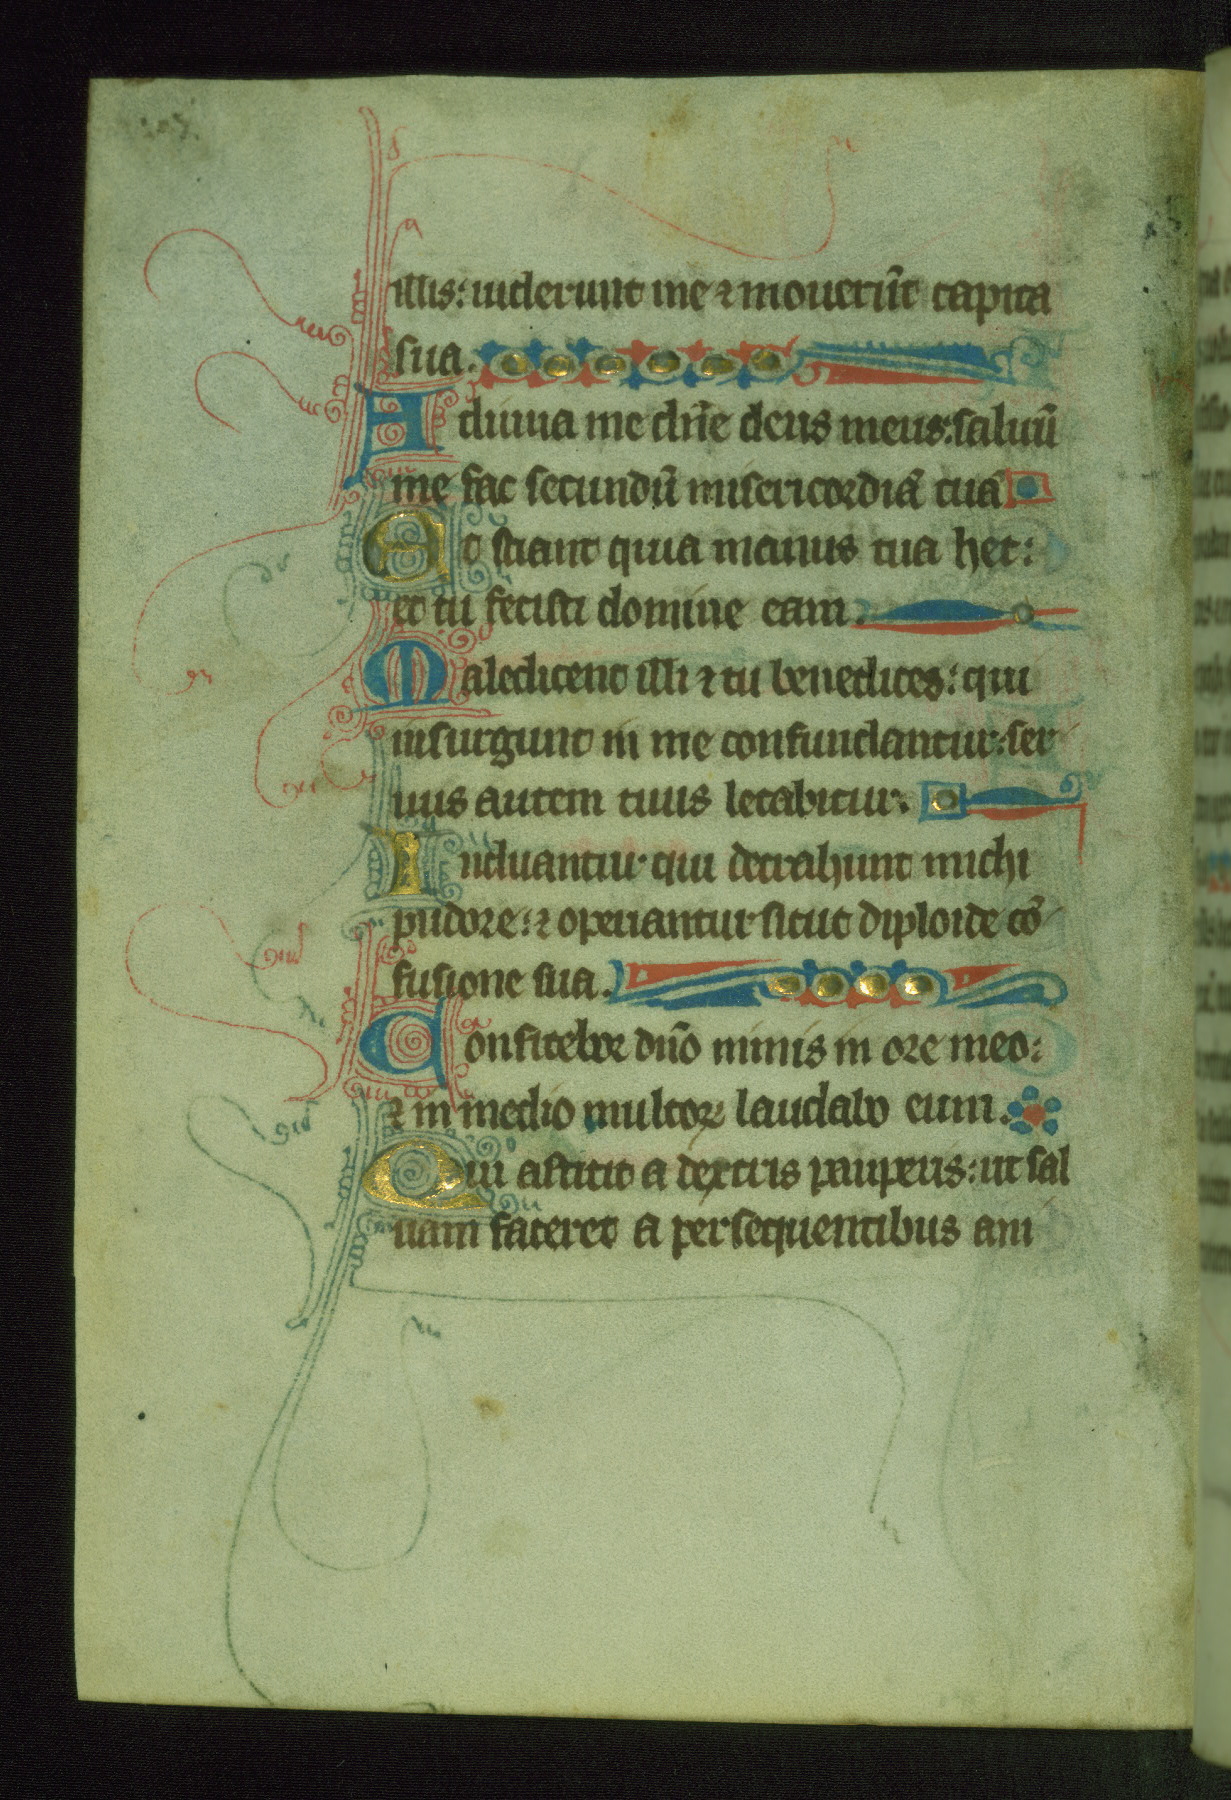 illis: uiderunt me ⁊ mouerūt capita
sua.
Adiuua me dn̄e deus meus: saluū
me fac secundū misericordiā tuā
Et sciant quia manus tua hec:
et tu fecisti domine eam.
Maledicent illi ⁊ tu benedices: qui
insurgunt in me confundantur: ser
uus autem tuus letabitur.
Induantur qui detrahunt michi
pudore: ⁊ operiantur sicut diploide cō
fusione sua.
Confitebor dn̄o nimis in ore meo:
⁊ in medio multoꝝ laudabo eum.
Qui astitit a dextris pauperis: ut sal
uam faceret a persequentibus ani